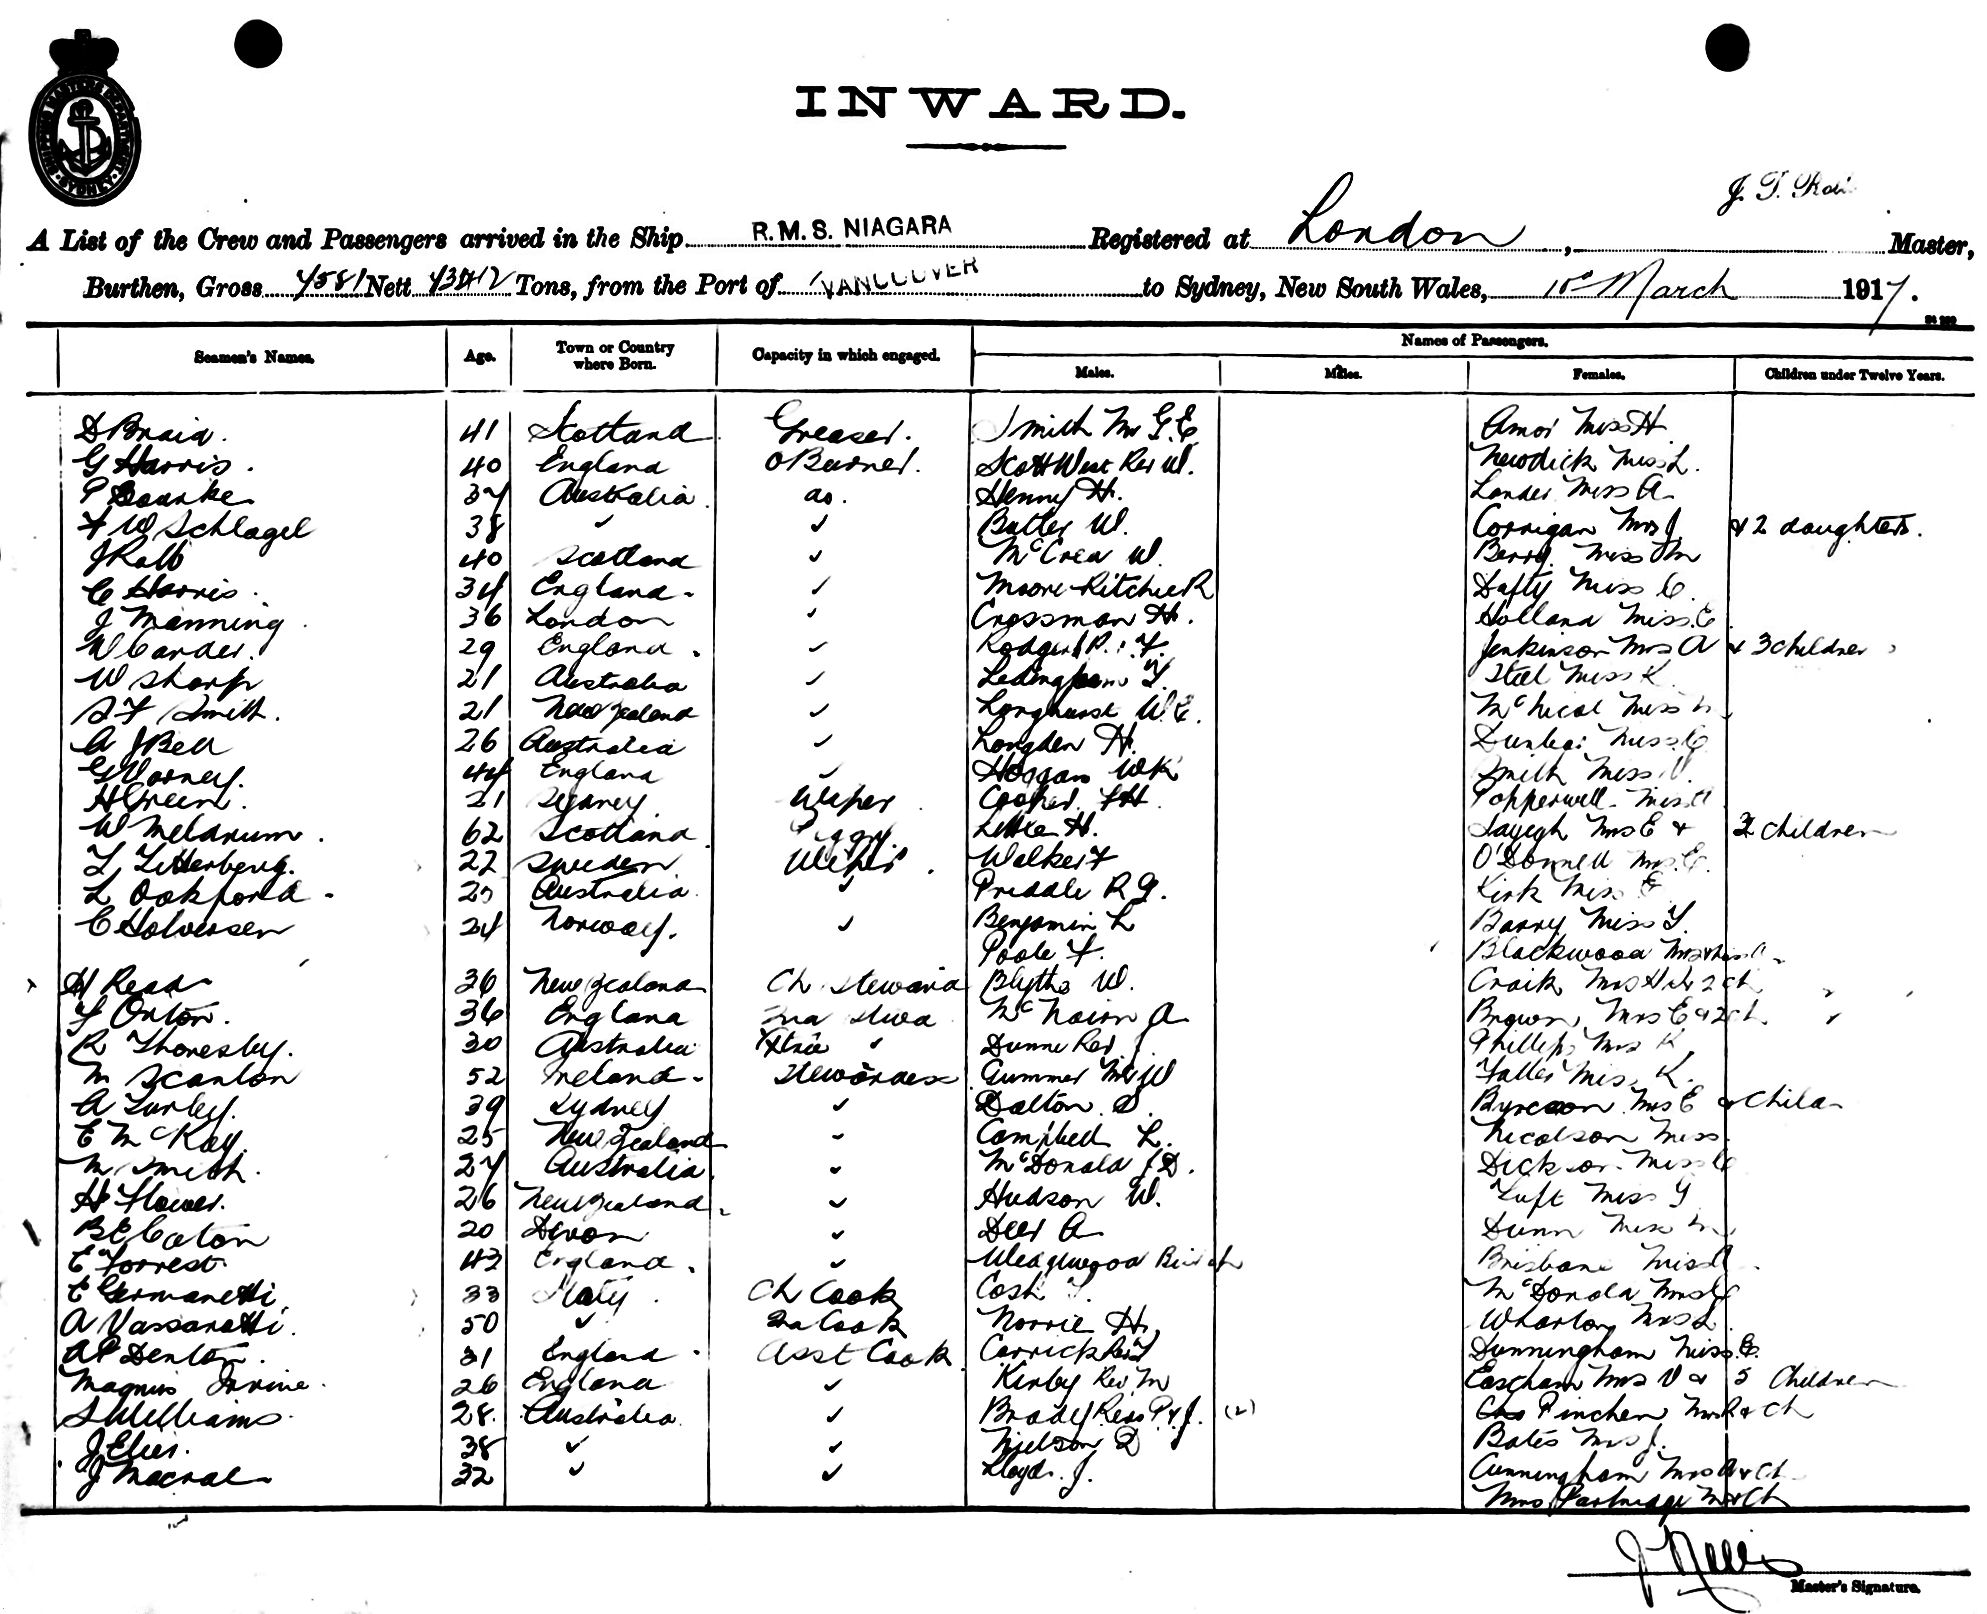 INWARD.
SYDNEY
A List of the Crew and Passengers arrived in the Ship R.M.S. NIAGARA Registered at London, J. T. Master,
Burthen, Gross 7581 Nett Tons, from the Port of VANCOUVER to Sydney, New South Wales, March 1917.
Names of Passengers.
Seamen's Names. Age. Town or Country where Born. Capacity in which engaged. Males. Males. Females. Children under Twelve Years.
D Braid. 41 Scotland Greaser. Smith Mr G. E. Amor Miss H
G Harris. 40 England O Burner. Scott West Rev W. Newdick Miss L.
P Bourke 37 Australia do. Henny H. Lander Miss A.
F W Schlagel 38 " ✓ Butler W. Corrigan Mrs J. & 2 daughters.
J Robb 40 Scotland ✓ McCrea W. Berry Miss M
C Harris. 34 England. ✓ Moore-Ritchie R Dafty Miss C.
J Manning. 36 London ✓ Crossman H. Holland Miss E
W Carder. 29 England. ✓ Rodgers Jenkinson Mrs A & 3 children
W Sharp 21 Australia ✓ Ledingham Steel Miss K
S F Smith. 21 New Zealand ✓ Longhurst W. E. McNicol Miss
A J Bell 26 Australia ✓ Longden H. Dunbar Miss C
G Varney. 44 England ✓ Hoggan WK Smith Miss
H Green. 21 Sydney Wiper Cooper F H. Popperwell Miss
W Meldrum. 62 Scotland Peggy Little H. Sayegh Mrs E & 2 children
L Zetterberg. 22 Sweden Wiper. Walker F O'Donnell Mrs E.
L Oakford. 25 Australia. ✓ Priddle R G. Kirk Miss E
C Halversen 24 Norway. ✓ Benjamin L Barry Miss
Poole F. Blackwood Mrs & Miss
H Read 36 New Zealand Ch Steward Blythe W. Craik Mrs H & 2 ch
F Orton. 36 England 2nd Stwd McNairn A Brown, Mrs E & 2 ch
R Thoresby. 30 Australia Xtra " Dunne Rev J Phillips Mrs K
M Scanlon 52 Ireland. Stewardess Gummer Mr W Miss K.
A Turley. 39 Sydney ✓ Dalton S. Mrs E & Child
E McKay. 25 New Zealand ✓ Campbell L. Nicolson Miss
M Smith. 27 Australia. ✓ McDonald J D. Dickson Miss C
H Flower. 26 New Zealand. ✓ Hudson W. Tuft Miss
B E Caton 20 Devon ✓ Deer A Dunn Miss M
E Forrest. 43 England. ✓ Wedgwood Brisbane Miss
E Germanetti 33 Italy. Ch Cook Cosh McDonald Mrs
A Vassaretti. 50 " 2nd Cook Norrie H. Wharton Mrs L.
A P Denton. 31 England. Asst Cook Carrick Rev Dunningham Miss E.
Magnus Irvine. 26 England ✓ Kirby Rev M Eastham Mrs V & 5 Children
S Williams. 28. Australia. ✓ Brady Revs P & J. (2) Pinchen Mrs R & Ch
J Elies. 38 " ✓ Nielson D Bates Mrs J.
J Macrae 32 " ✓ Lloyd. J. Cunningham Mrs & Ch
Mrs Partridge & Ch
Master's Signature.